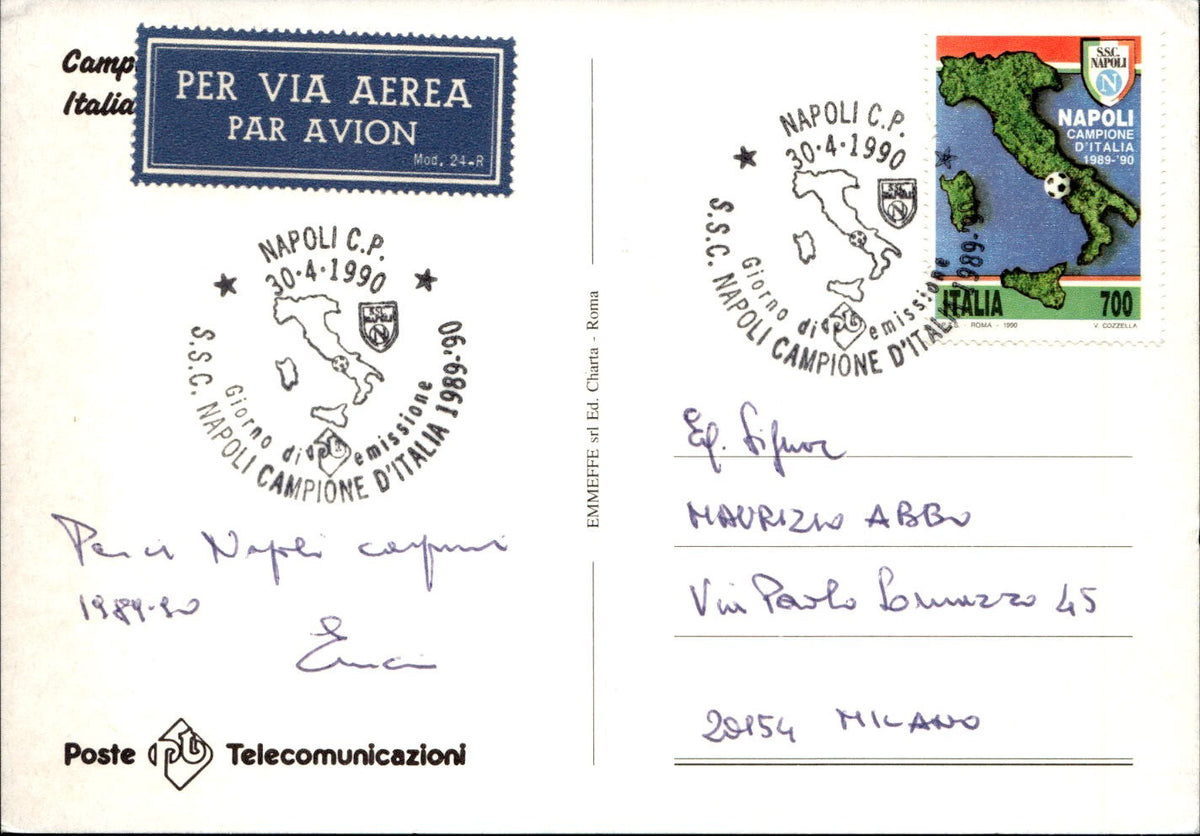 Camp
Italia
PER VIA AEREA
PAR AVION
Mod. 24-R
NAPOLI C.P.
30·4·1990
S.S.C. NAPOLI
N
Giorno di emissione
S.S.C. NAPOLI CAMPIONE D'ITALIA 1989-'90
Napoli
1989-90
Poste Telecomunicazioni
EMMEFFE srl Ed. Charta - Roma
NAPOLI C.P.
30·4·1990
S.S.C. NAPOLI
N
Giorno di emissione
S.S.C. NAPOLI CAMPIONE D'ITALIA 1989-'90
S.S.C.
NAPOLI
N
NAPOLI
CAMPIONE
D'ITALIA
1989-'90
ITALIA 700
ROMA - 1990 V. COZZELLA
Eg. Signor
MAURIZIO ABBO
Via Paolo Lomazzo 45
20154 MILANO